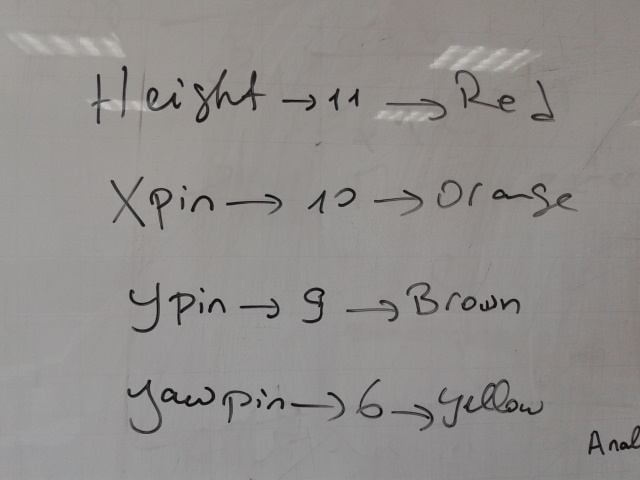 Height → 11 → Red
Xpin → 10 → Orange
ypin → 9 → Brown
yaw pin → 6 → yellow
Anal